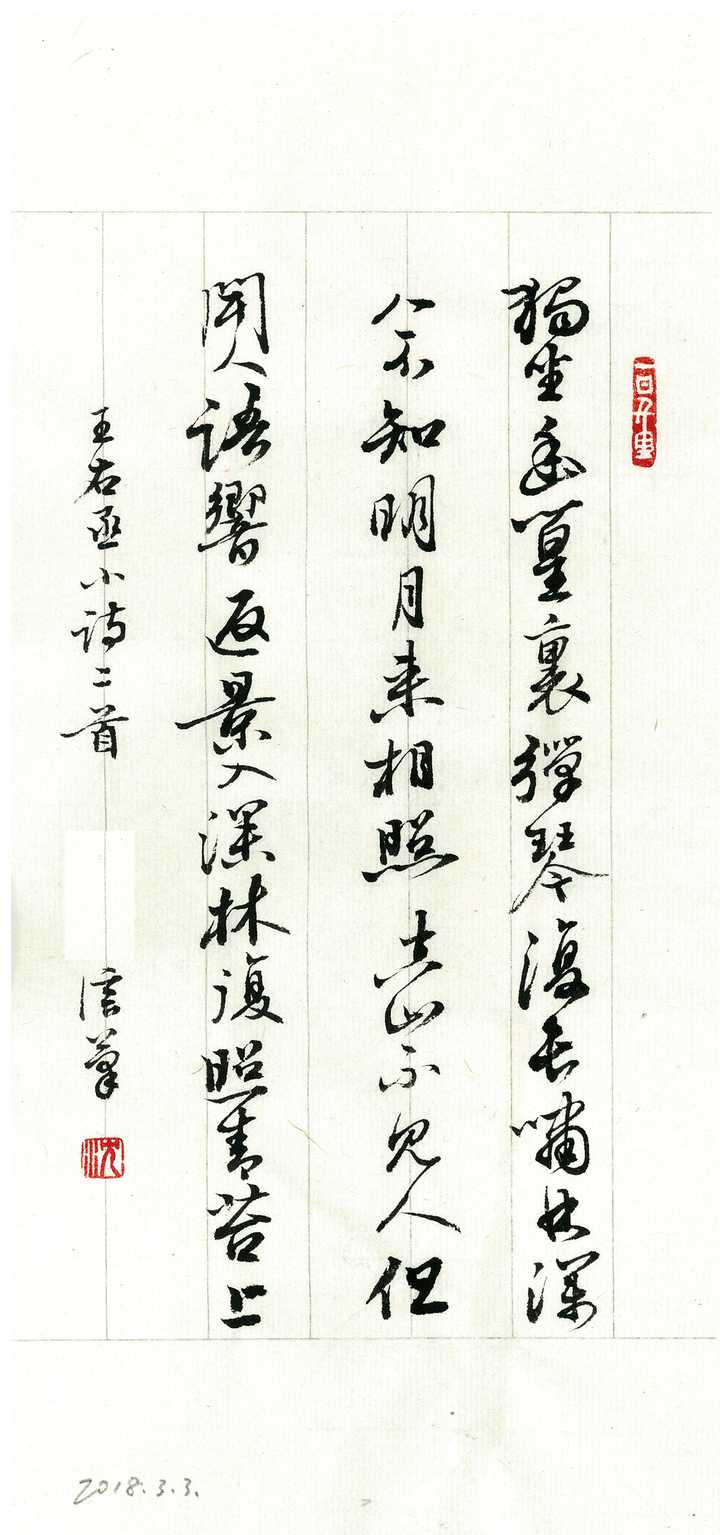 獨坐幽篁裏彈琴復長嘯林深
人不知明月来相照空山不見人但
聞人語響返景入深林復照青苔上
王右丞小詩二首
信筆
沈
2018.3.3.